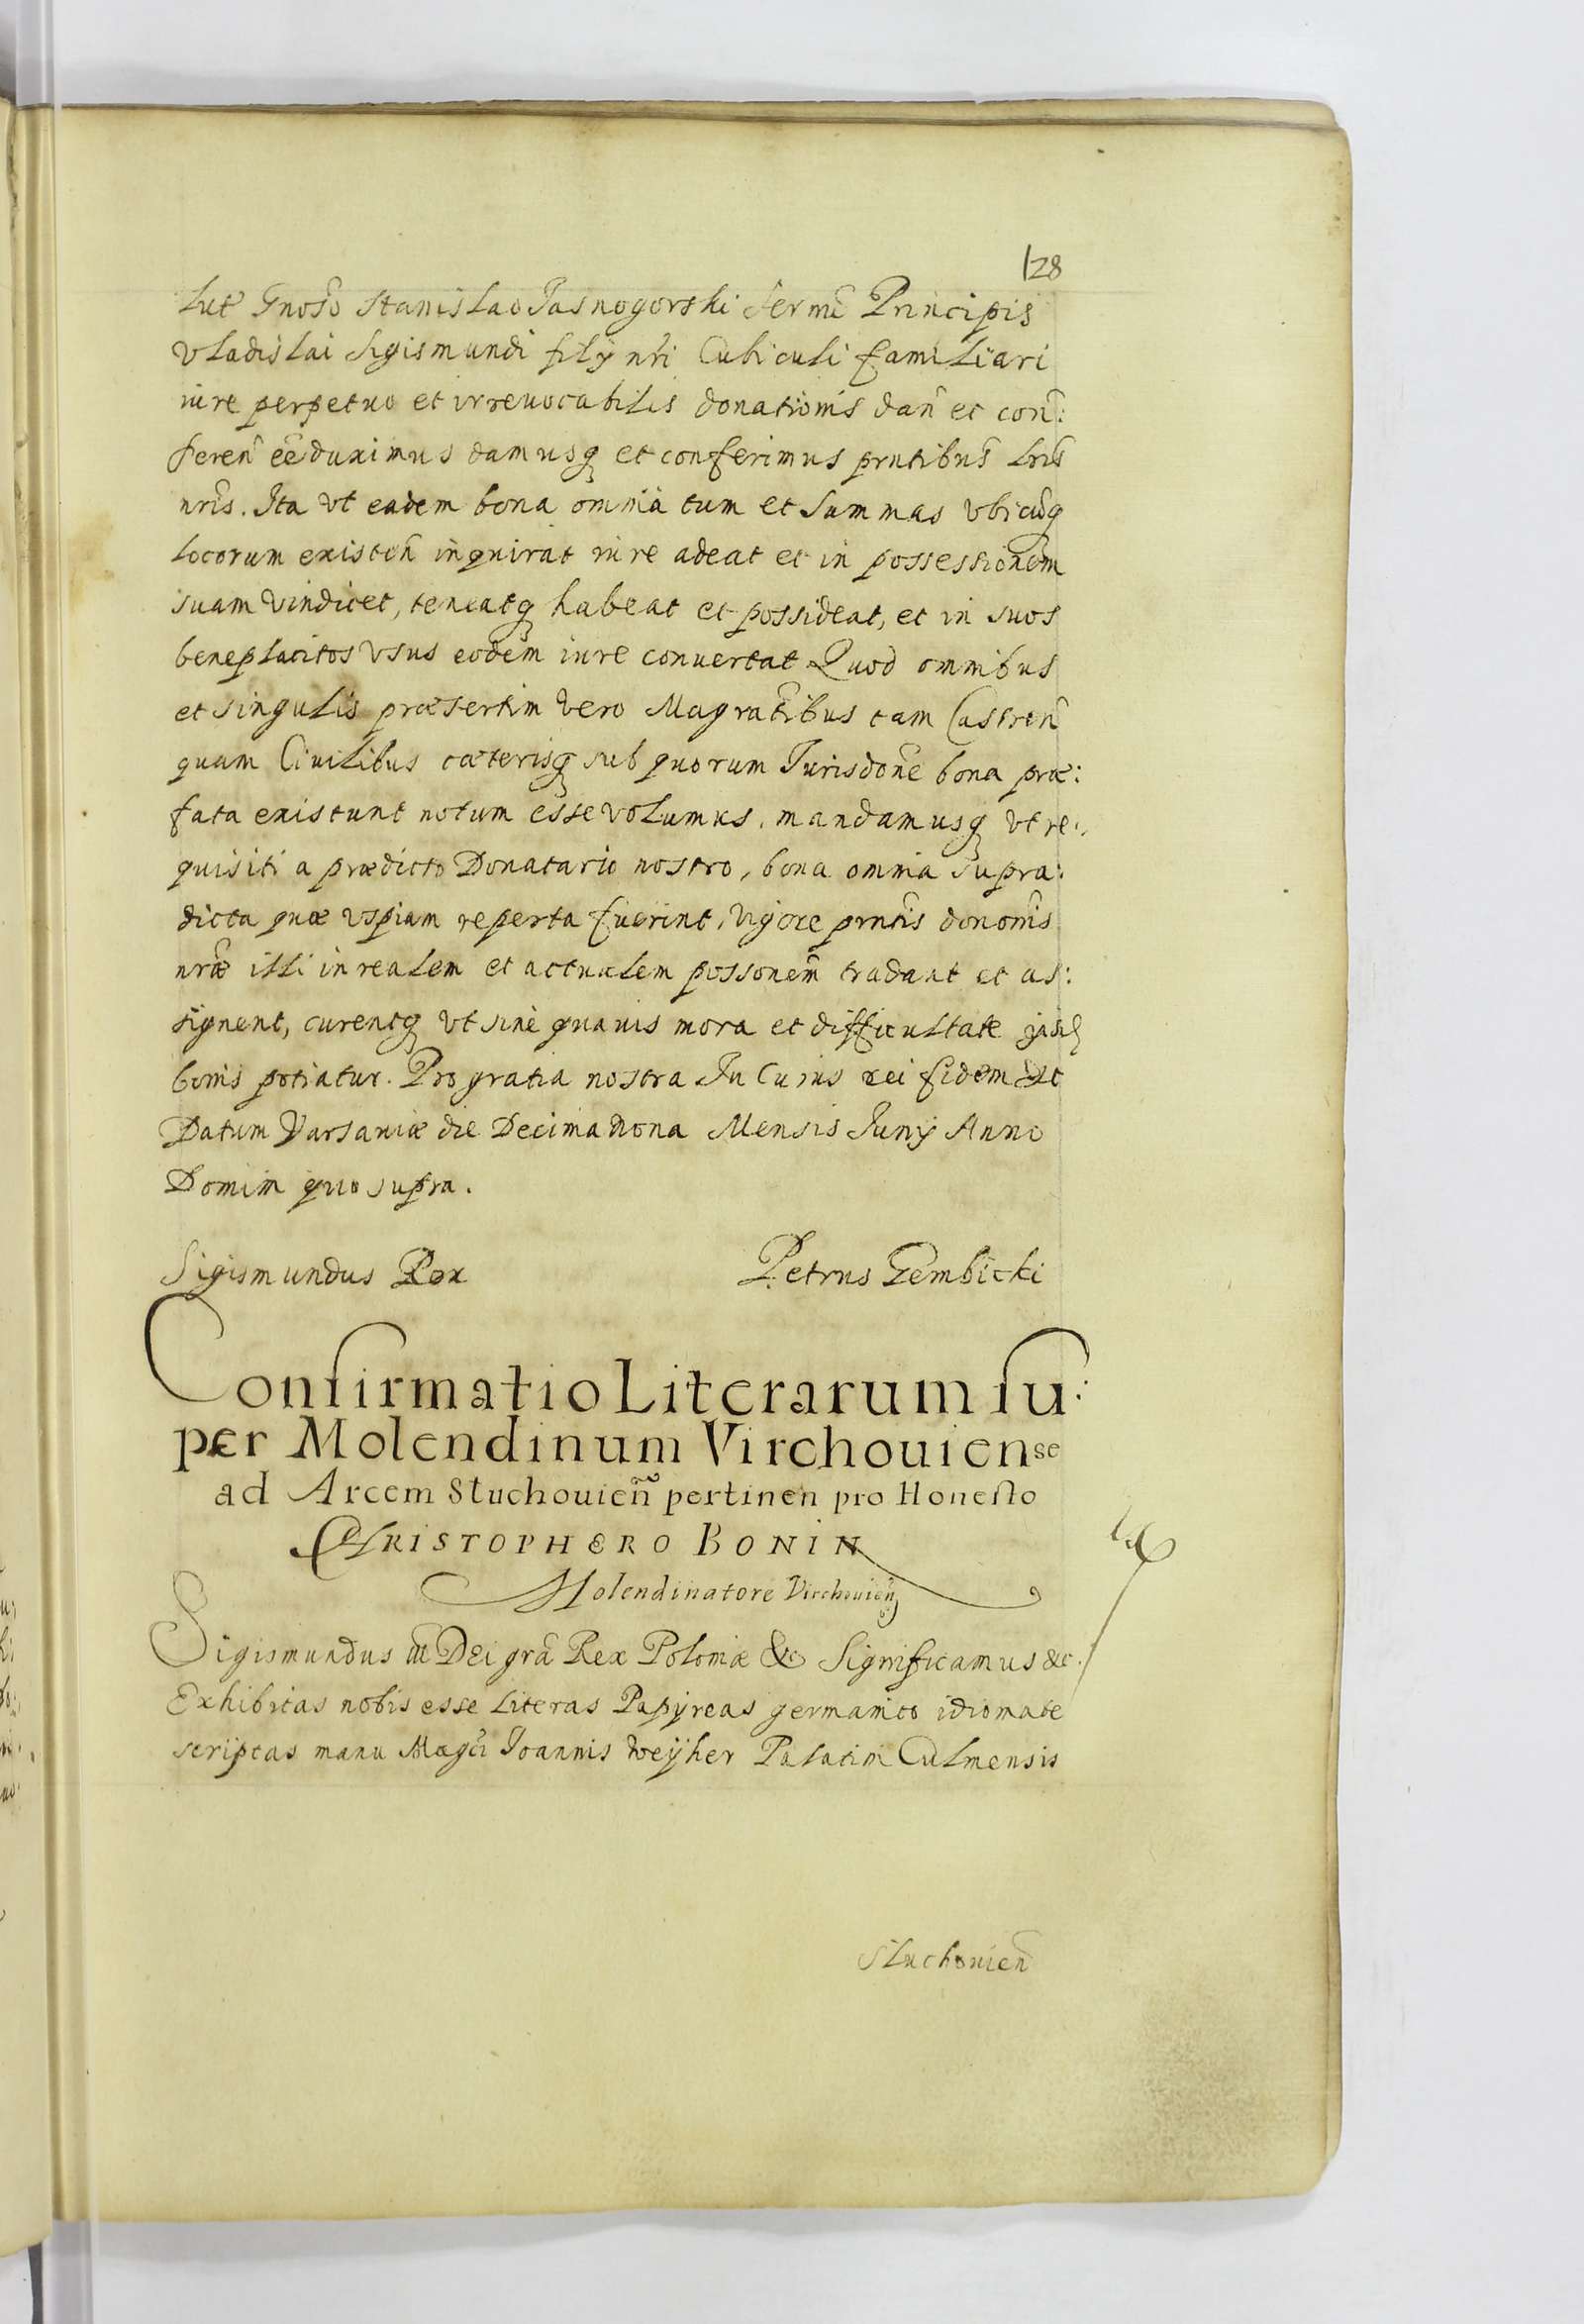 128
lut Gnoso Stanislao Jasnogorski Sermi Principis
Vladislai Sigismundi filÿ nri Cubiculi familiari
iure perpetuo et irreuocabilis donationis dan et con:
feren eē duximus damusq et conferimus prntibus lris
nris. Ita vt eadem bona omnia tum et summas vbicūq
locorum existen inquirat iure adeat et in possessionem
suam vindicet, teneatq habeat et possideat, et in suos
beneplacitos vsus eodem iure conuertat Quod omnibus
et singulis præsertim vero Magratibus tam Castren
quam Ciuilibus cæterisq sub quorum Jurisdone bona præ:
fata existunt notum esse volumus, mandamusq vt re:
quisiti a prædicto Donatario nostro, bona omnia supra:
dicta quæ vspiam reperta fuerint, vigore prntis dononis
nræ illi in realem et actualem possonem tradant et as:
signent, curentq vt sine quauis mora et difficultate
bonis potiatur. Pro gratia nostra In Cuius rei fidem &c
Datum Varsaviæ die Decima nona Mensis Junÿ Anno
Domini quo supra.
Sigismundus Rex Petrus Gembicki
Confirmatio Literarum su:
per Molendinum Virchouiense
ad Arcem Sluchouien pertinen pro Honesto
CHRISTOPHERO BONIN
Molendinatore Virchouien
Sigismundus III Dei gra Rex Poloniæ &c Significamus &c.
Exhibitas nobis esse literas Papÿreas germanico idiomate
scriptas manu Magci Joannis Weÿher Palatini Culmensis
Sluchouien